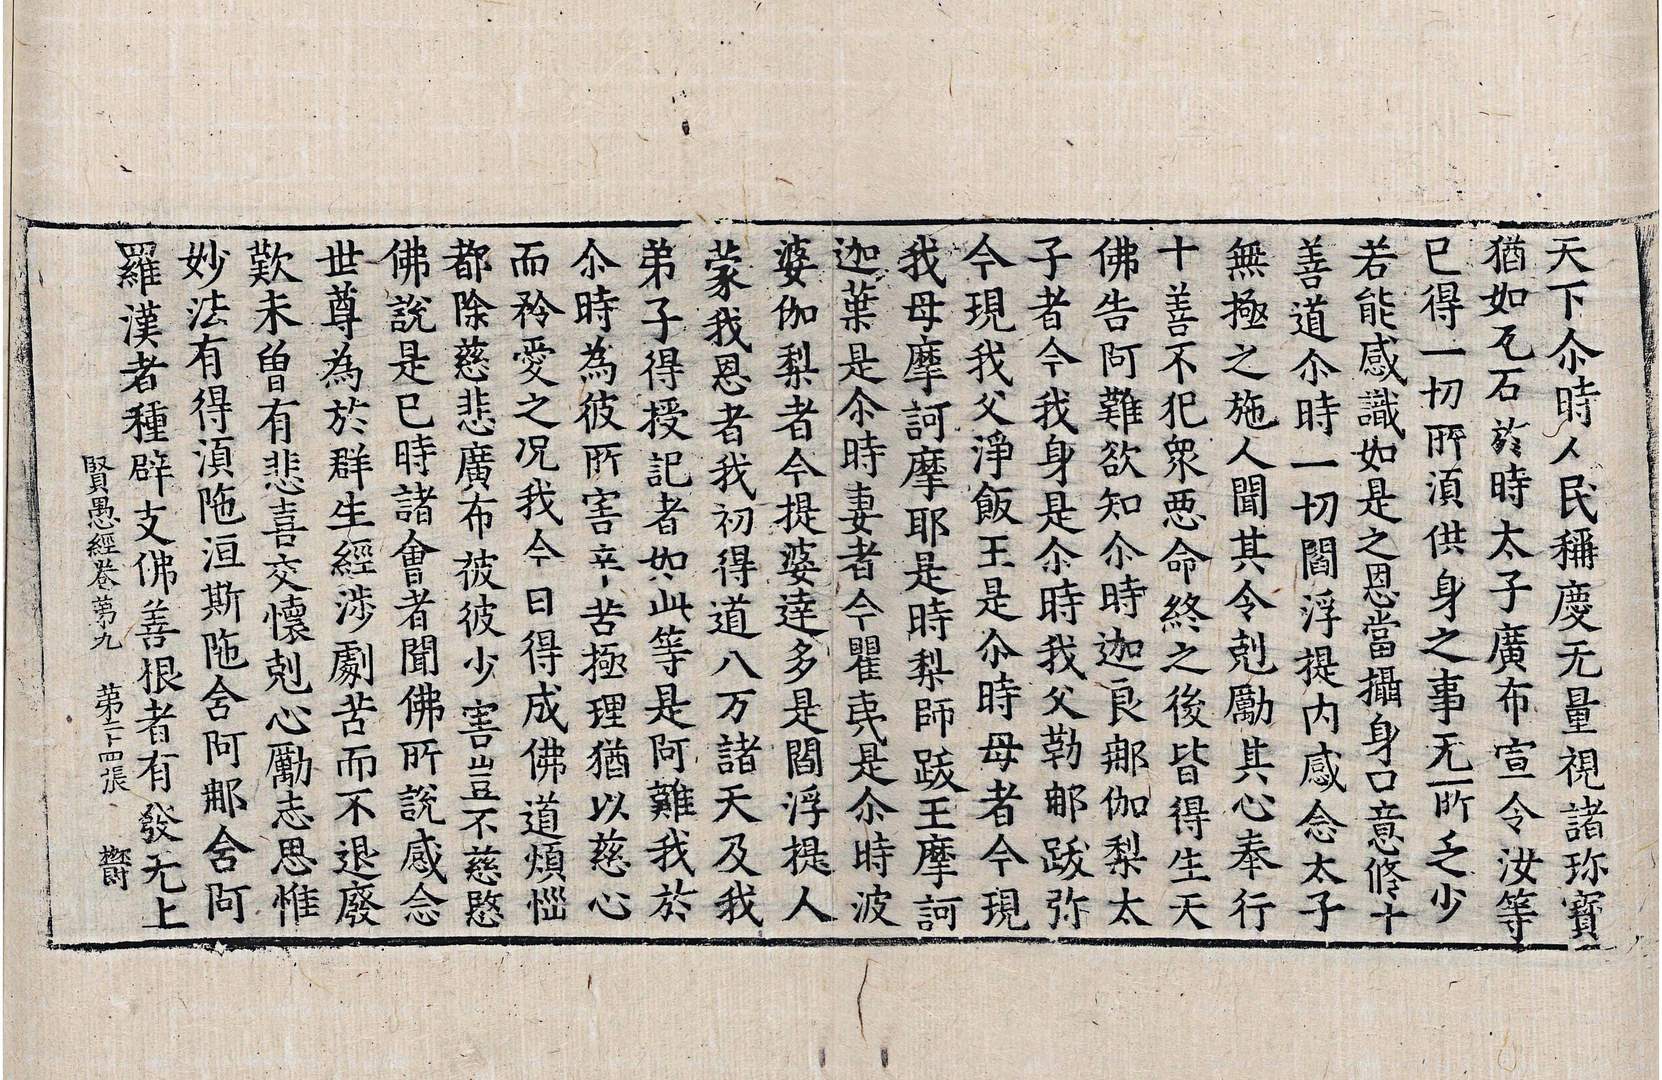 天下尒時人民稱慶无量視諸珎寶
猶如瓦石於時太子廣布宣令汝等
已得一切所湏供身之事无所乏少
若能感識如是之恩當攝身口意修十
善道尒時一切閻浮提内感念太子
無極之施人聞其令剋勵其心奉行
十善不犯衆惡命終之後皆得生天
佛告阿難欲知尒時迦良那伽梨太
子者今我身是尒時我父勒那跋弥
今現我父淨飯王是尒時母者今現
我母摩訶摩耶是時梨師跋王摩訶
迦葉是尒時妻者今瞿夷是尒時波
婆伽梨者今提婆達多是閻浮提人
蒙我恩者我初得道八万諸天及我
弟子得授記者如此等是阿難我於
尒時為彼所害辛苦極理猶以慈心
而矜愛之况我今日得成佛道煩惱
都除慈悲廣布被彼少害豈不慈愍
佛說是已時諸會者聞佛所說感念
世尊為於群生經涉劇苦而不退廢
歎未曾有悲喜交懷剋心勵志思惟
妙法有得湏陁洹斯陁舍阿那舍阿
羅漢者種辟支佛善根者有發无上
賢愚經卷第九 第二十四張 欝